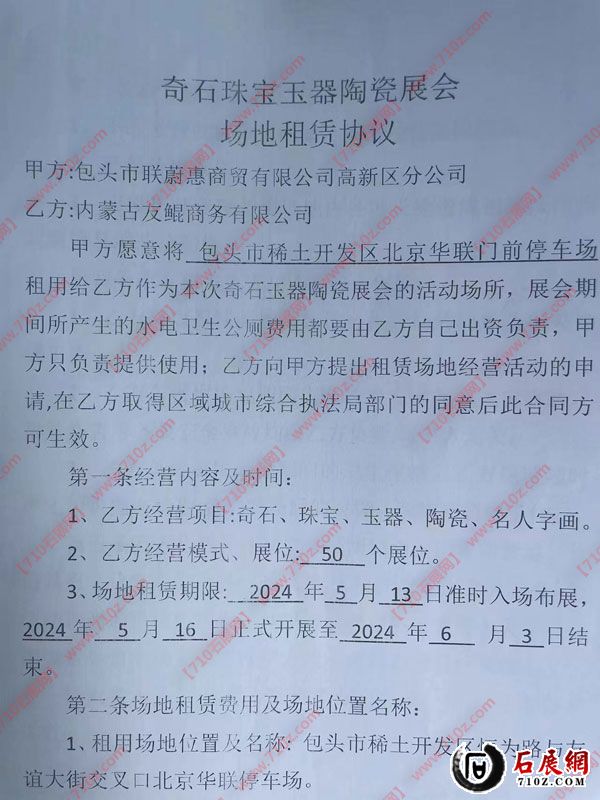 奇石珠宝玉器陶瓷展会
场地租赁协议
甲方:包头市联蔚惠商贸有限公司高新区分公司
乙方:内蒙古友鲲商务有限公司
甲方愿意将 包头市稀土开发区北京华联门前停车场
租用给乙方作为本次奇石玉器陶瓷展会的活动场所，展会期
间所产生的水电卫生公厕费用都要由乙方自己出资负责，甲
方只负责提供使用；乙方向甲方提出租赁场地经营活动的申
请,在乙方取得区域城市综合执法局部门的同意后此合同方
可生效。
第一条经营内容及时间：
1、乙方经营项目:奇石、珠宝、玉器、陶瓷、名人字画。
2、乙方经营模式、展位: 50 个展位。
3、场地租赁期限: 2024 年 5 月 13 日准时入场布展，
2024 年 5 月 16 日正式开展至 2024 年 6 月 3 日结
束。
第二条场地租赁费用及场地位置名称：
1、租用场地位置及名称: 包头市稀土开发区恒为路与友
谊大街交叉口北京华联停车场。
石展網
710Z.COM
【710石展网】
www.710z.com